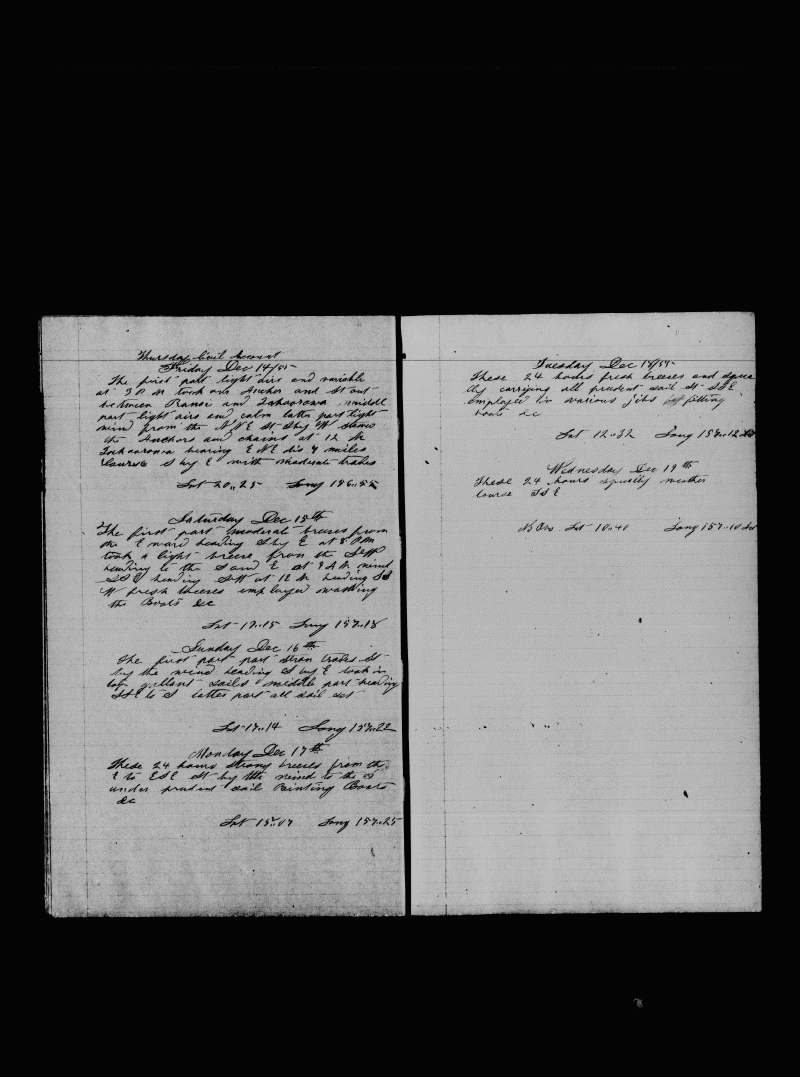 Thursday Civil Account
Friday Dec 14/55
The first part light airs and variable
at 3 P M took our Anchor and St out
between Ranai and Tahoorowa middle
part light airs and calm latter part light
wind from the N N E St S by W stowed
the Anchors and chains at 12 M
Tahoorowa bearing E N E dis 4 miles
Course S by E with moderate trades
Lat 20,,25 Long 156,,55
Saturday Dec 15th
The first part moderate breezes from
the E ward heading S by E at 8 P M
took a light breeze from the
heading to the S and E at 9 A M wind
heading S W at 12 M heading SS
W fresh breezes employed
the Boats &c
Lat 19,,15 Long 157,,18
Sunday Dec 16th
The first part part stron trades St
by the wind heading S by E took in
gallant sails middle part heading
SSE to S latter part all sail set
Lat 17,,14 Long 157,,22
Monday Dec 17th
These 24 hours strong breezes from the
E to ESE St by the wind to the S
under prudent sail Painting Boats
&c
Lat 15,,07 Long 157,,25
Tuesday Dec 18/55
These 24 hours fresh breezes and squa
lly carrying all prudent sail St SSE
employed in various jobs fitting
boats &c
Lat 12,,32 Long 157,,12
Wednesday Dec 19th
These 24 hours squally weather
course SSE
No Obs Lat 10,,40 Long 157,,10